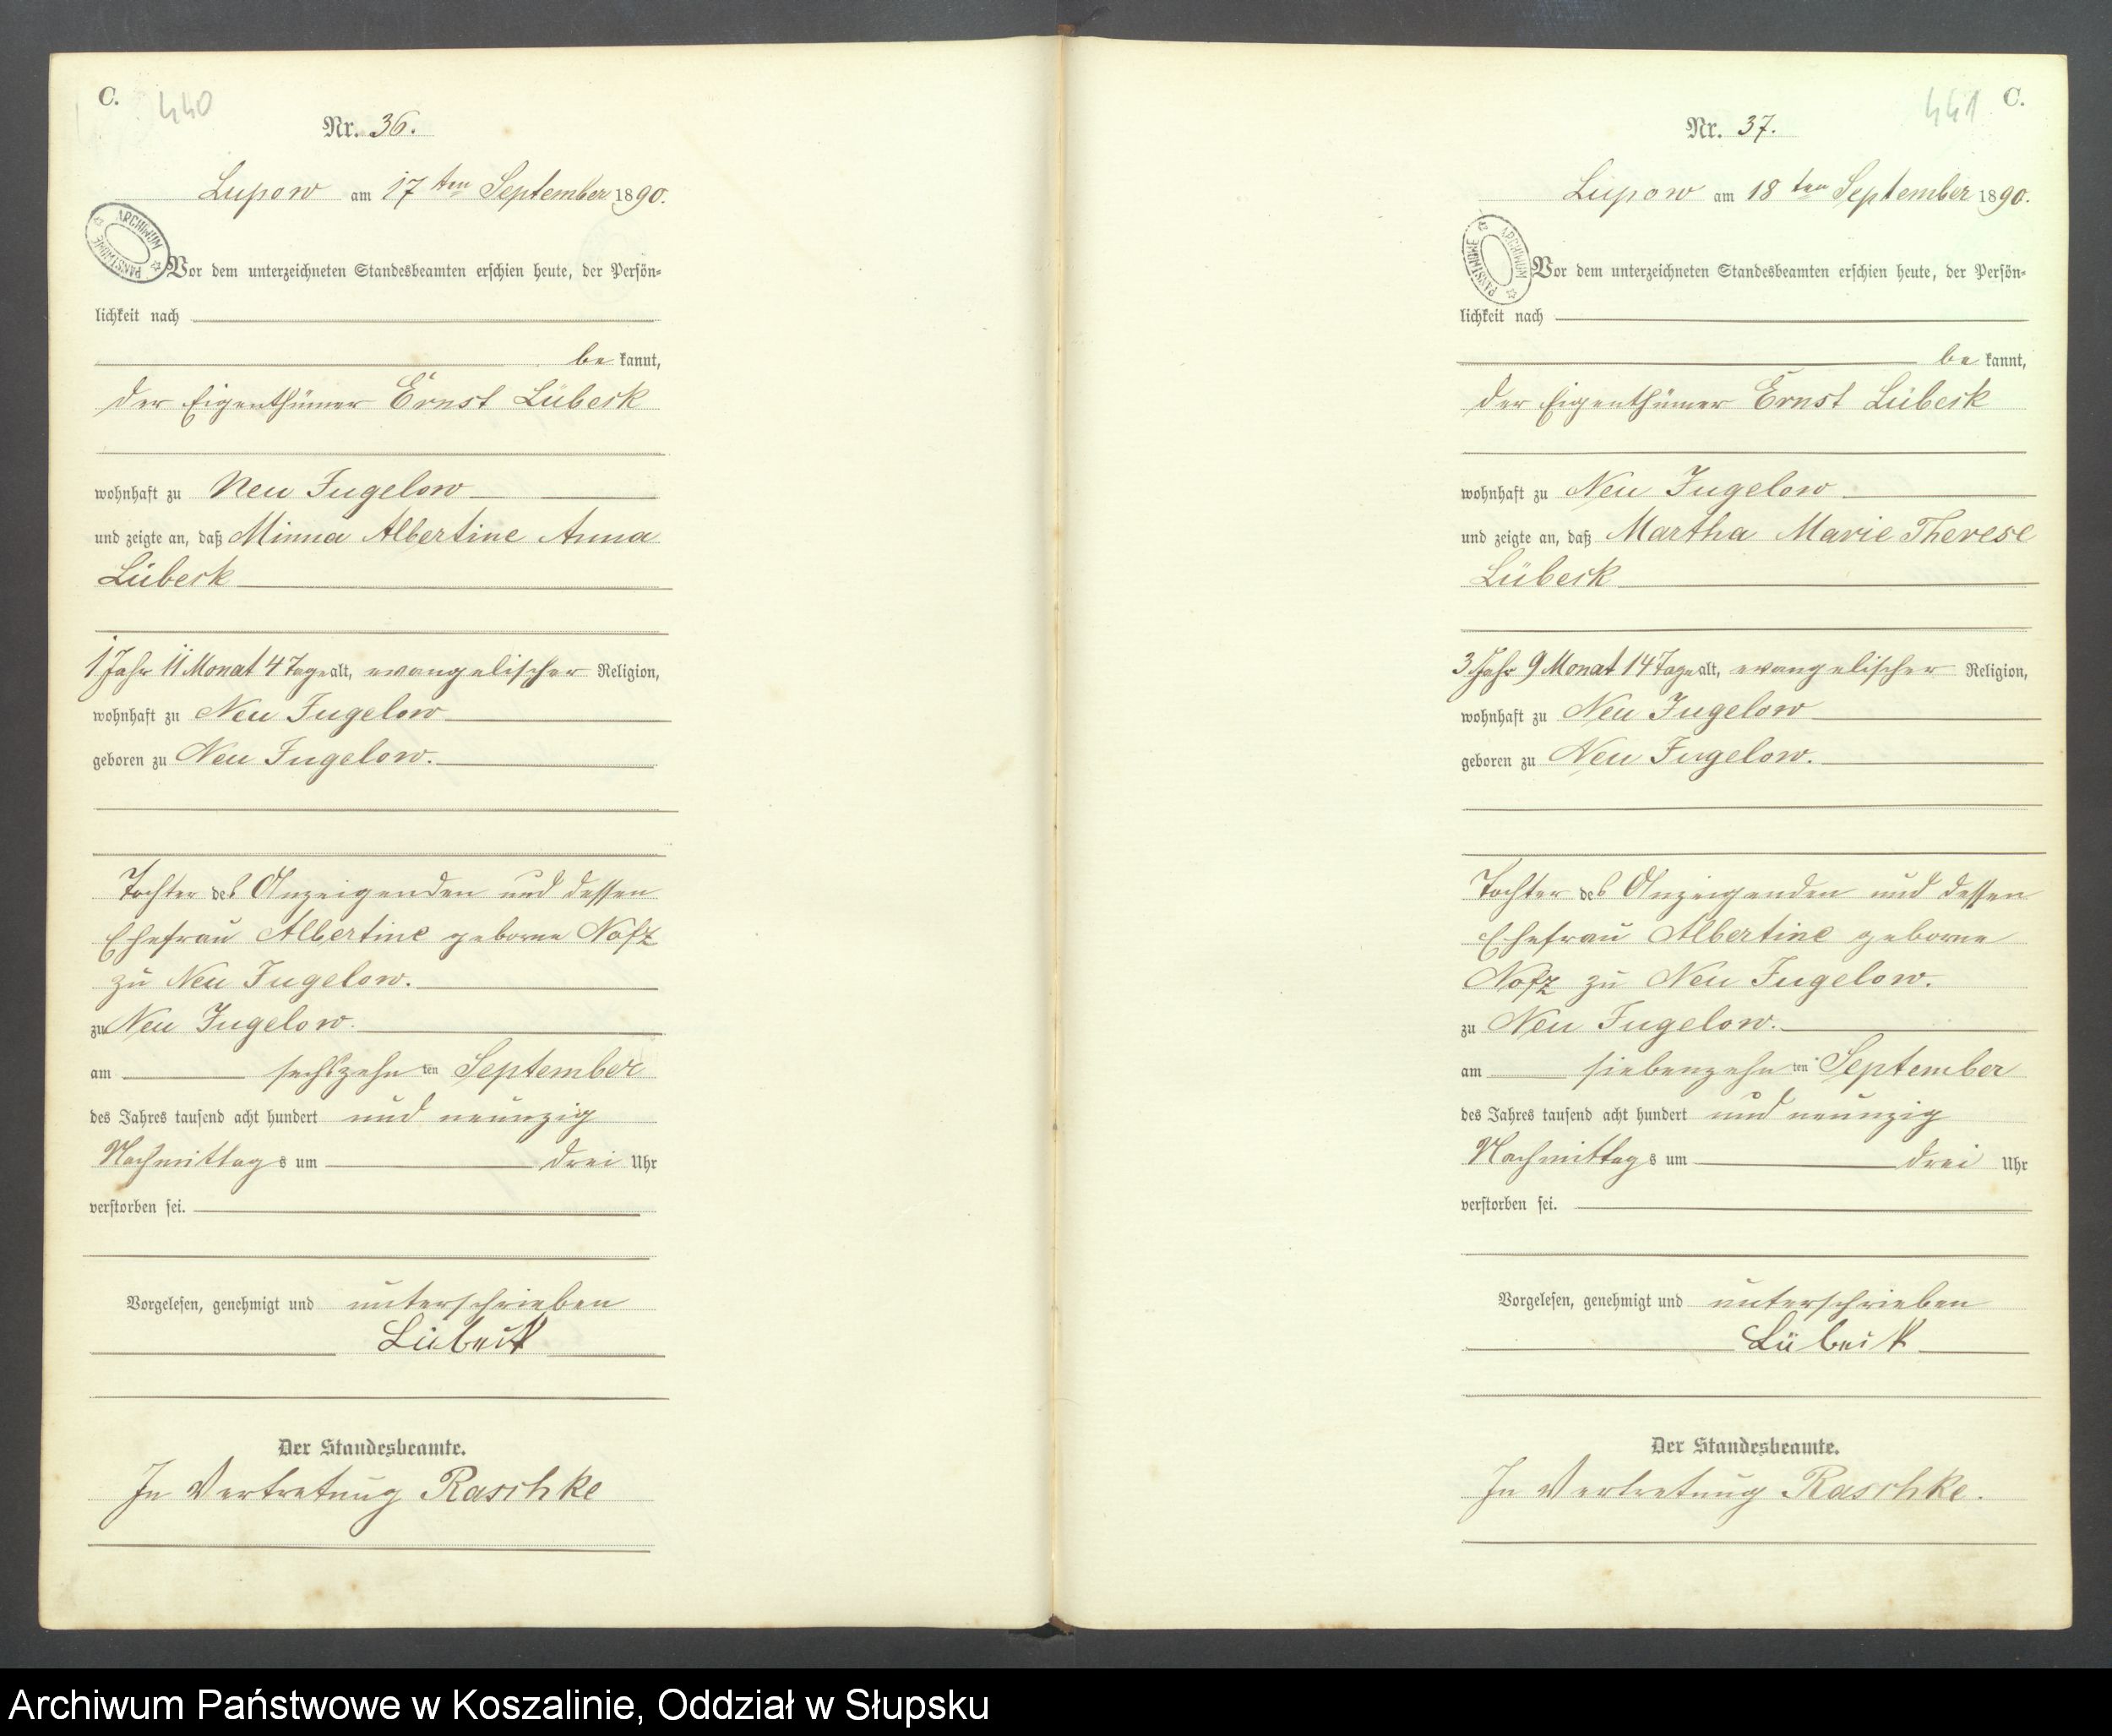 C.
440
Nr. 36.
Lupow am 17ten September 1890.
ARCHIWUM PAŃSTWOWE
Vor dem unterzeichneten Standesbeamten erschien heute, der Persön-
lichkeit nach
be kannt,
der Eigenthümer Ernst Lübeck
wohnhaft zu Neu Jugelow
und zeigte an, daß Minna Albertine Anna
Lübeck
1 Jahr 11 Monat 4 Tage alt, evangelischer Religion,
wohnhaft zu Neu Jugelow
geboren zu Neu Jugelow.
Tochter des Anzeigenden und dessen
Ehefrau Albertine geborne Notz
zu Neu Jugelow.
zu Neu Jugelow.
am sechszehn ten September
des Jahres tausend acht hundert und neunzig
Nachmittags um drei Uhr
verstorben sei.
Vorgelesen, genehmigt und unterschrieben
Lübeck
Der Standesbeamte.
In Vertretung Raschke
C.
441
Nr. 37.
Lupow am 18ten September 1890.
ARCHIWUM PAŃSTWOWE
Vor dem unterzeichneten Standesbeamten erschien heute, der Persön-
lichkeit nach
be kannt,
der Eigenthümer Ernst Lübeck
wohnhaft zu Neu Jugelow
und zeigte an, daß Martha Marie Therese
Lübeck
3 Jahr 9 Monat 14 Tage alt, evangelischer Religion,
wohnhaft zu Neu Jugelow
geboren zu Neu Jugelow.
Tochter des Anzeigenden und dessen
Ehefrau Albertine geborne
Notz zu Neu Jugelow.
zu Neu Jugelow.
am siebenzehn ten September
des Jahres tausend acht hundert und neunzig
Nachmittags um drei Uhr
verstorben sei.
Vorgelesen, genehmigt und unterschrieben
Lübeck
Der Standesbeamte.
In Vertretung Raschke.
Archiwum Państwowe w Koszalinie, Oddział w Słupsku